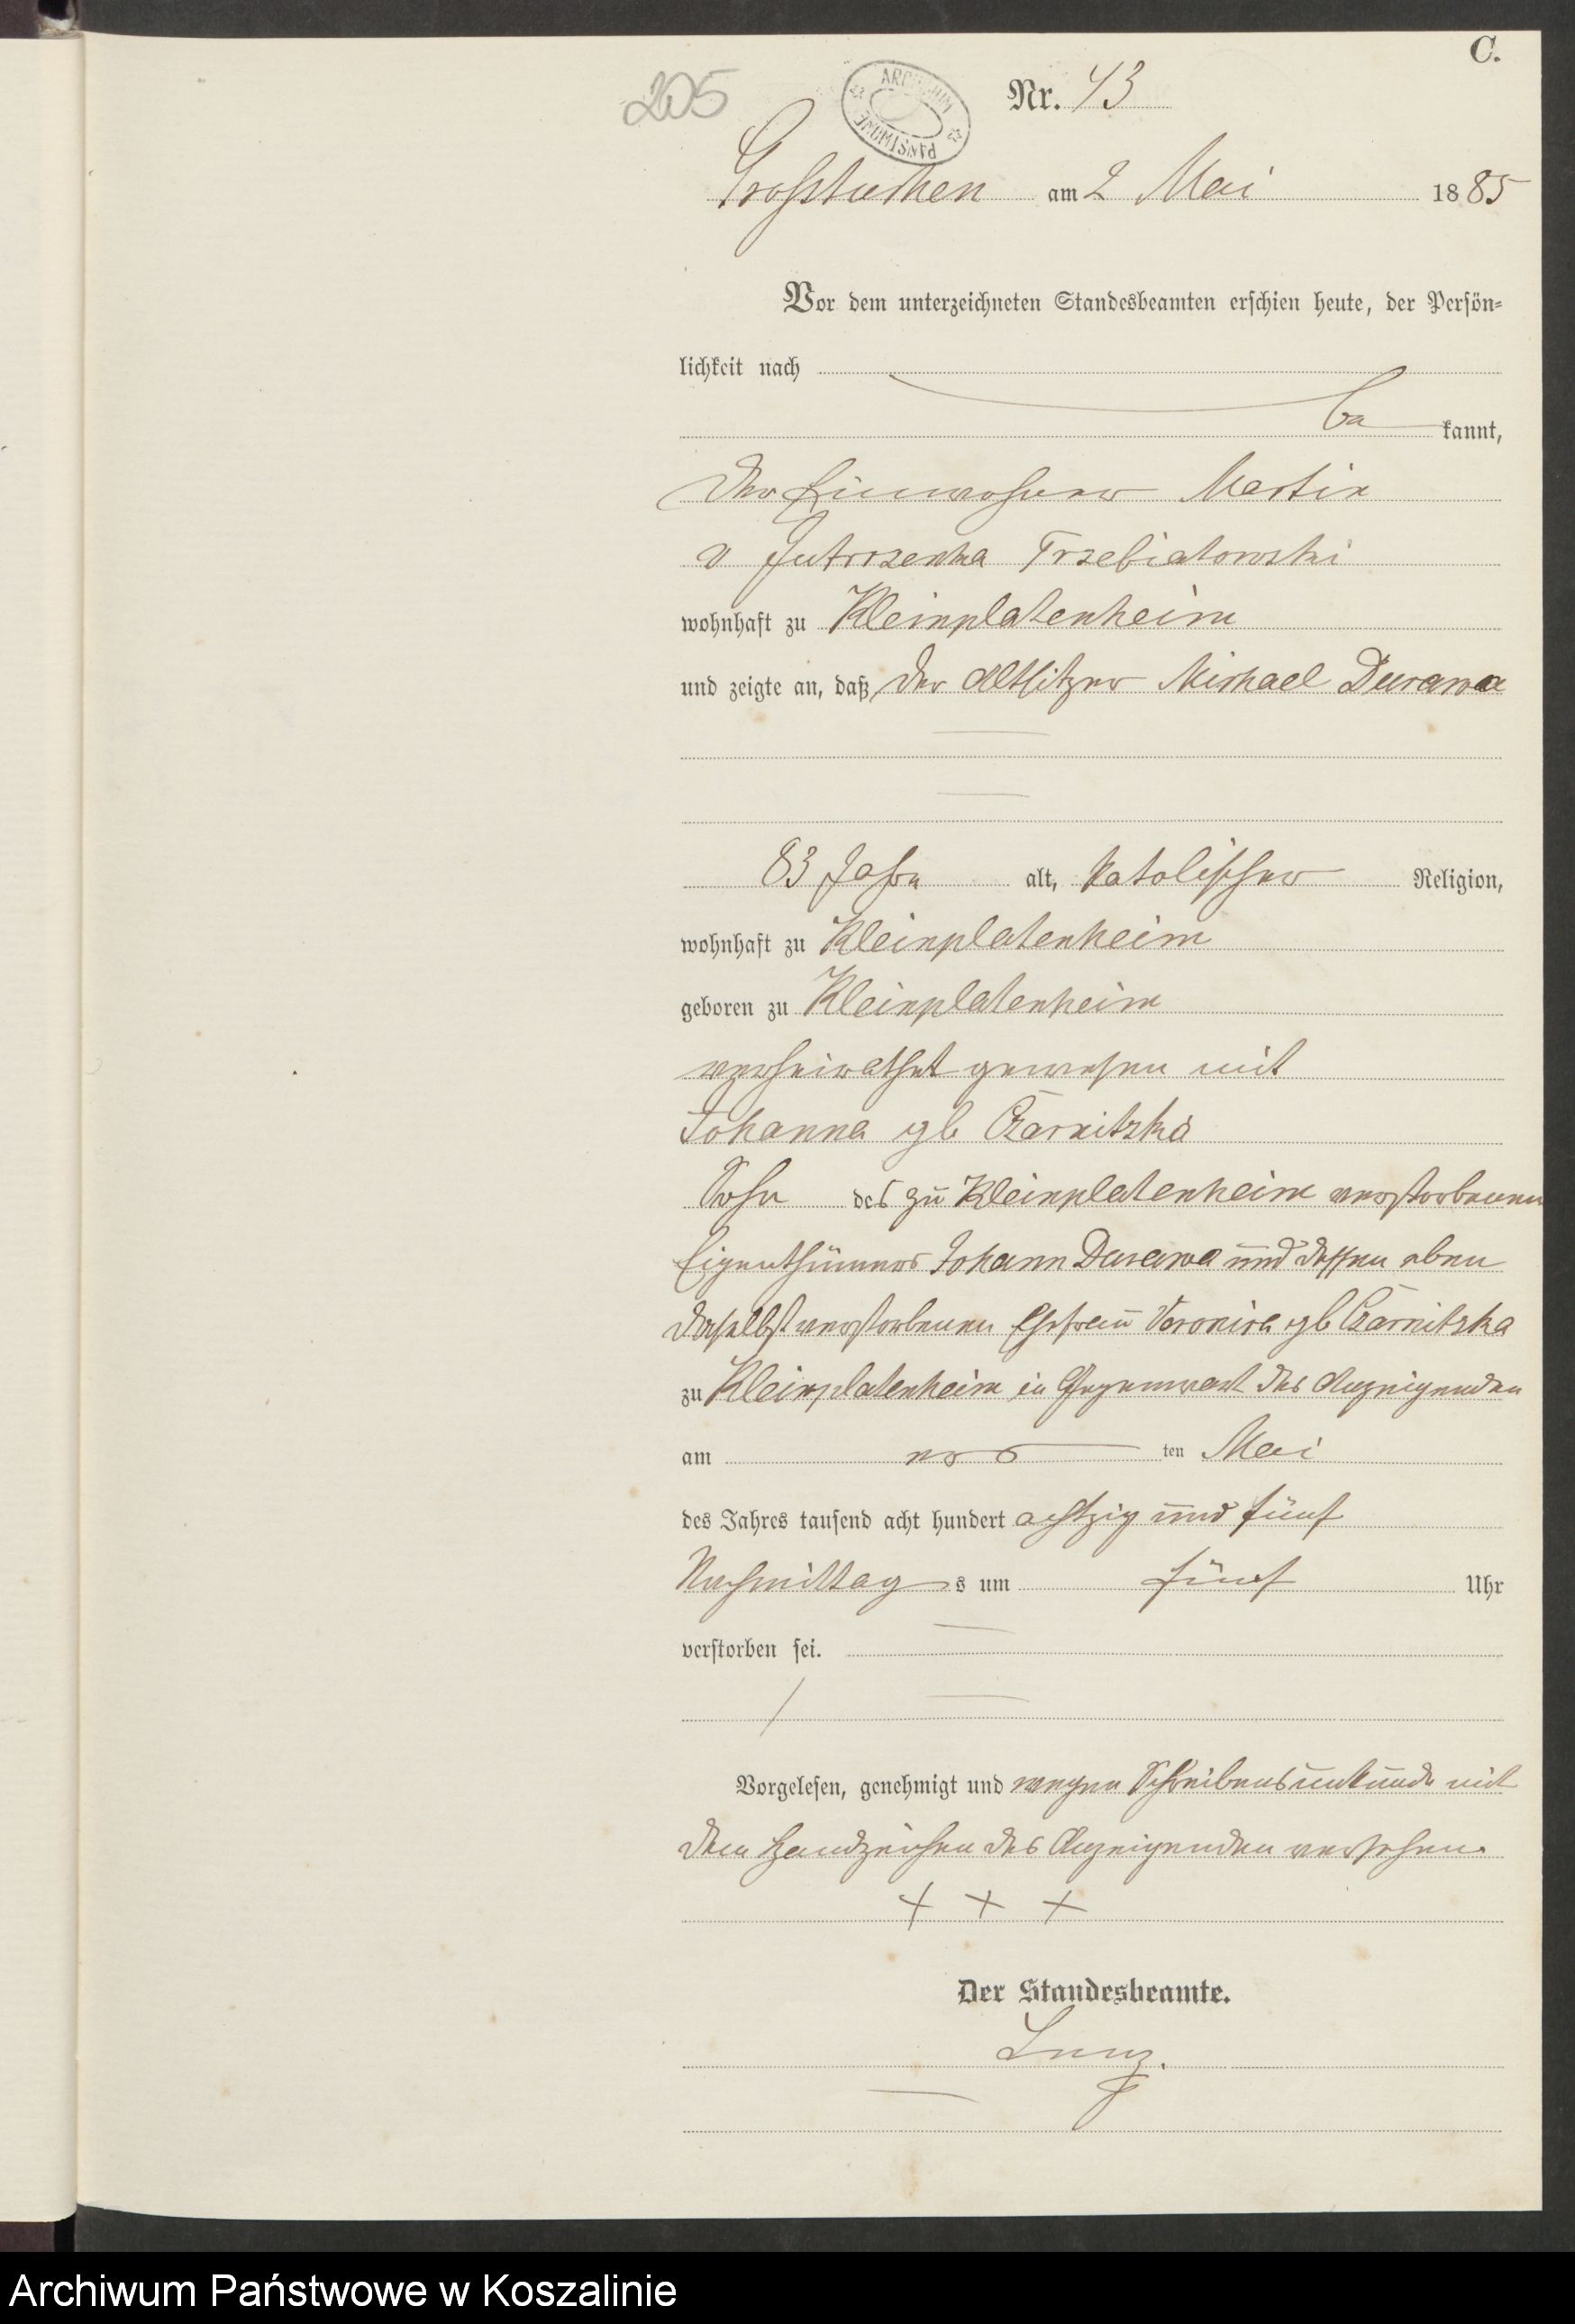 C.
205
ARCHIWUM PAŃSTWOWE
Nr. 43
Großtuchen am 2 Mai 1885
Vor dem unterzeichneten Standesbeamten erschien heute, der Persön-
lichkeit nach
be kannt,
der Einwohner Martin
v Jutrzenka Trzebiatowski
wohnhaft zu Kleinplatenheim
und zeigte an, daß der Altsitzer Michael Durawa
83 Jahre alt, katolischer Religion,
wohnhaft zu Kleinplatenheim
geboren zu Kleinplatenheim
verheirathet gewesen mit
Johanna gb Czarnitzka
Sohn des zu Kleinplatenheim verstorbenen
Eigenthümers Johann Durawa und dessen eben
daselbst verstorbenen Ehefrau Veronica gb Czarnitzka
zu Kleinplatenheim in Gegenwart des Anzeigenden
am ten Mai
des Jahres tausend acht hundert achtzig und fünf
Nachmittag s um fünf Uhr
verstorben sei.
Vorgelesen, genehmigt und wegen Schreibensunkunde mit
dem Handzeichen des Anzeigenden versehen.
+ + +
Der Standesbeamte.
Archiwum Państwowe w Koszalinie